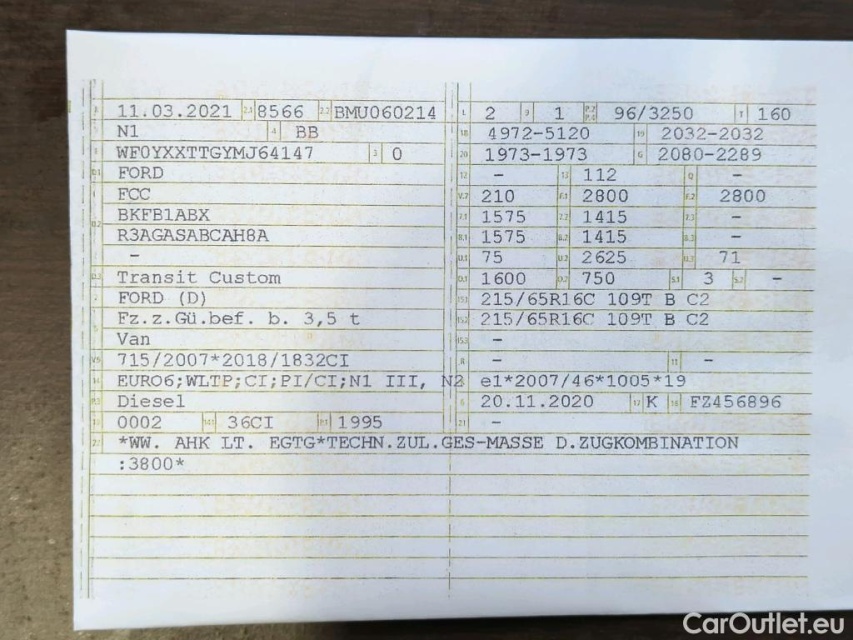 11.03.2021 2.1 8566 2.2 BMU060214 L 2 9 1 P.2 P.4 96/3250 T 160
N1 4 BB 18 4972-5120 19 2032-2032
WF0YXXTTGYMJ64147 3 0 20 1973-1973 G 2080-2289
D.1 FORD 12 - 13 112 Q -
FCC V.7 210 F.1 2800 F.2 2800
D.2 BKFB1ABX 7.1 1575 7.2 1415 7.3 -
R3AGASABCAH8A 8.1 1575 8.2 1415 8.3 -
- U.1 75 U.2 2625 U.3 71
D.3 Transit Custom O.1 1600 O.2 750 S.1 3 S.2 -
FORD (D) 15.1 215/65R16C 109T B C2
Fz.z.Gü.bef. b. 3,5 t 15.2 215/65R16C 109T B C2
Van 15.3 -
V.9 715/2007*2018/1832CI R - 11 -
14 EURO6;WLTP;CI;PI/CI;N1 III, N2 e1*2007/46*1005*19
P.3 Diesel 6 20.11.2020 17 K 16 FZ456896
10 0002 14.1 36CI P.1 1995 21 -
22 *WW. AHK LT. EGTG*TECHN.ZUL.GES-MASSE D.ZUGKOMBINATION
:3800*
CarOutlet.eu